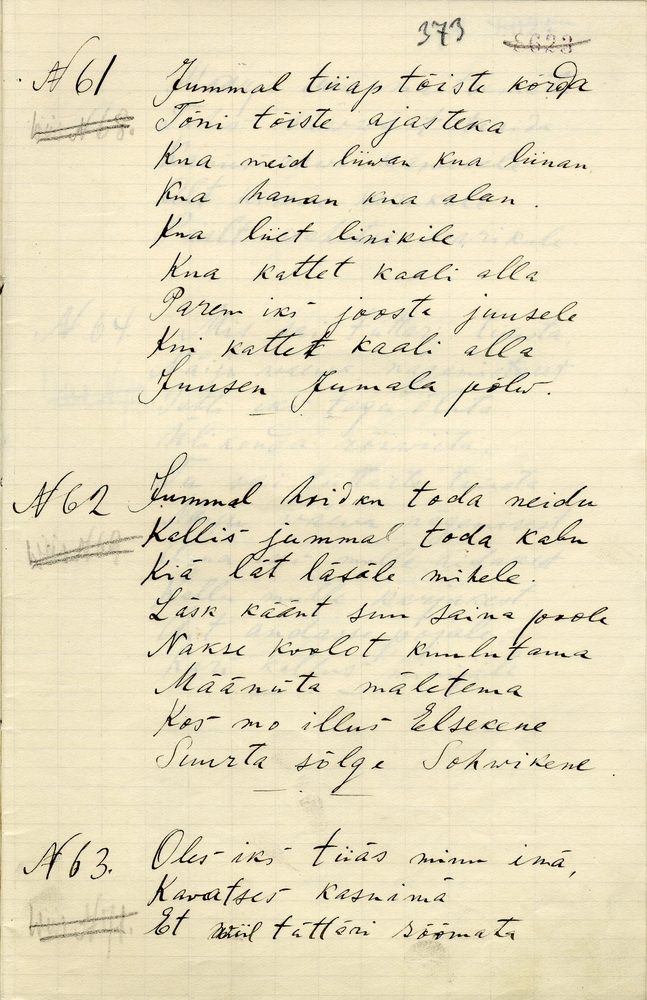 373
8623
N 61 Jummal tüap tõiste kõrda
Tõni tõiste ajasteka
Kua meid liiwan kua liinan
Kua hauan kua alan.
Kua liiet linikile
Kua kattet kaali alla
Parem iks joosta juusele
Kui kattet kaali alla
Juusen Jumala põlw.
N 62 Jummal hoidku toda neidu
Kallis jummal toda kabu
Kiä lät läsäle mihele.
Läsk käänt suu saina poole
Nakse koolot kuulutama
Määnüta mäletema
Kos mo illus Elsekene
Suurta sõlge Sohwikene.
N 63. Oles iks tiiäs minu imä,
Kavatses kasuimä
Et wiil tüttäri söömata